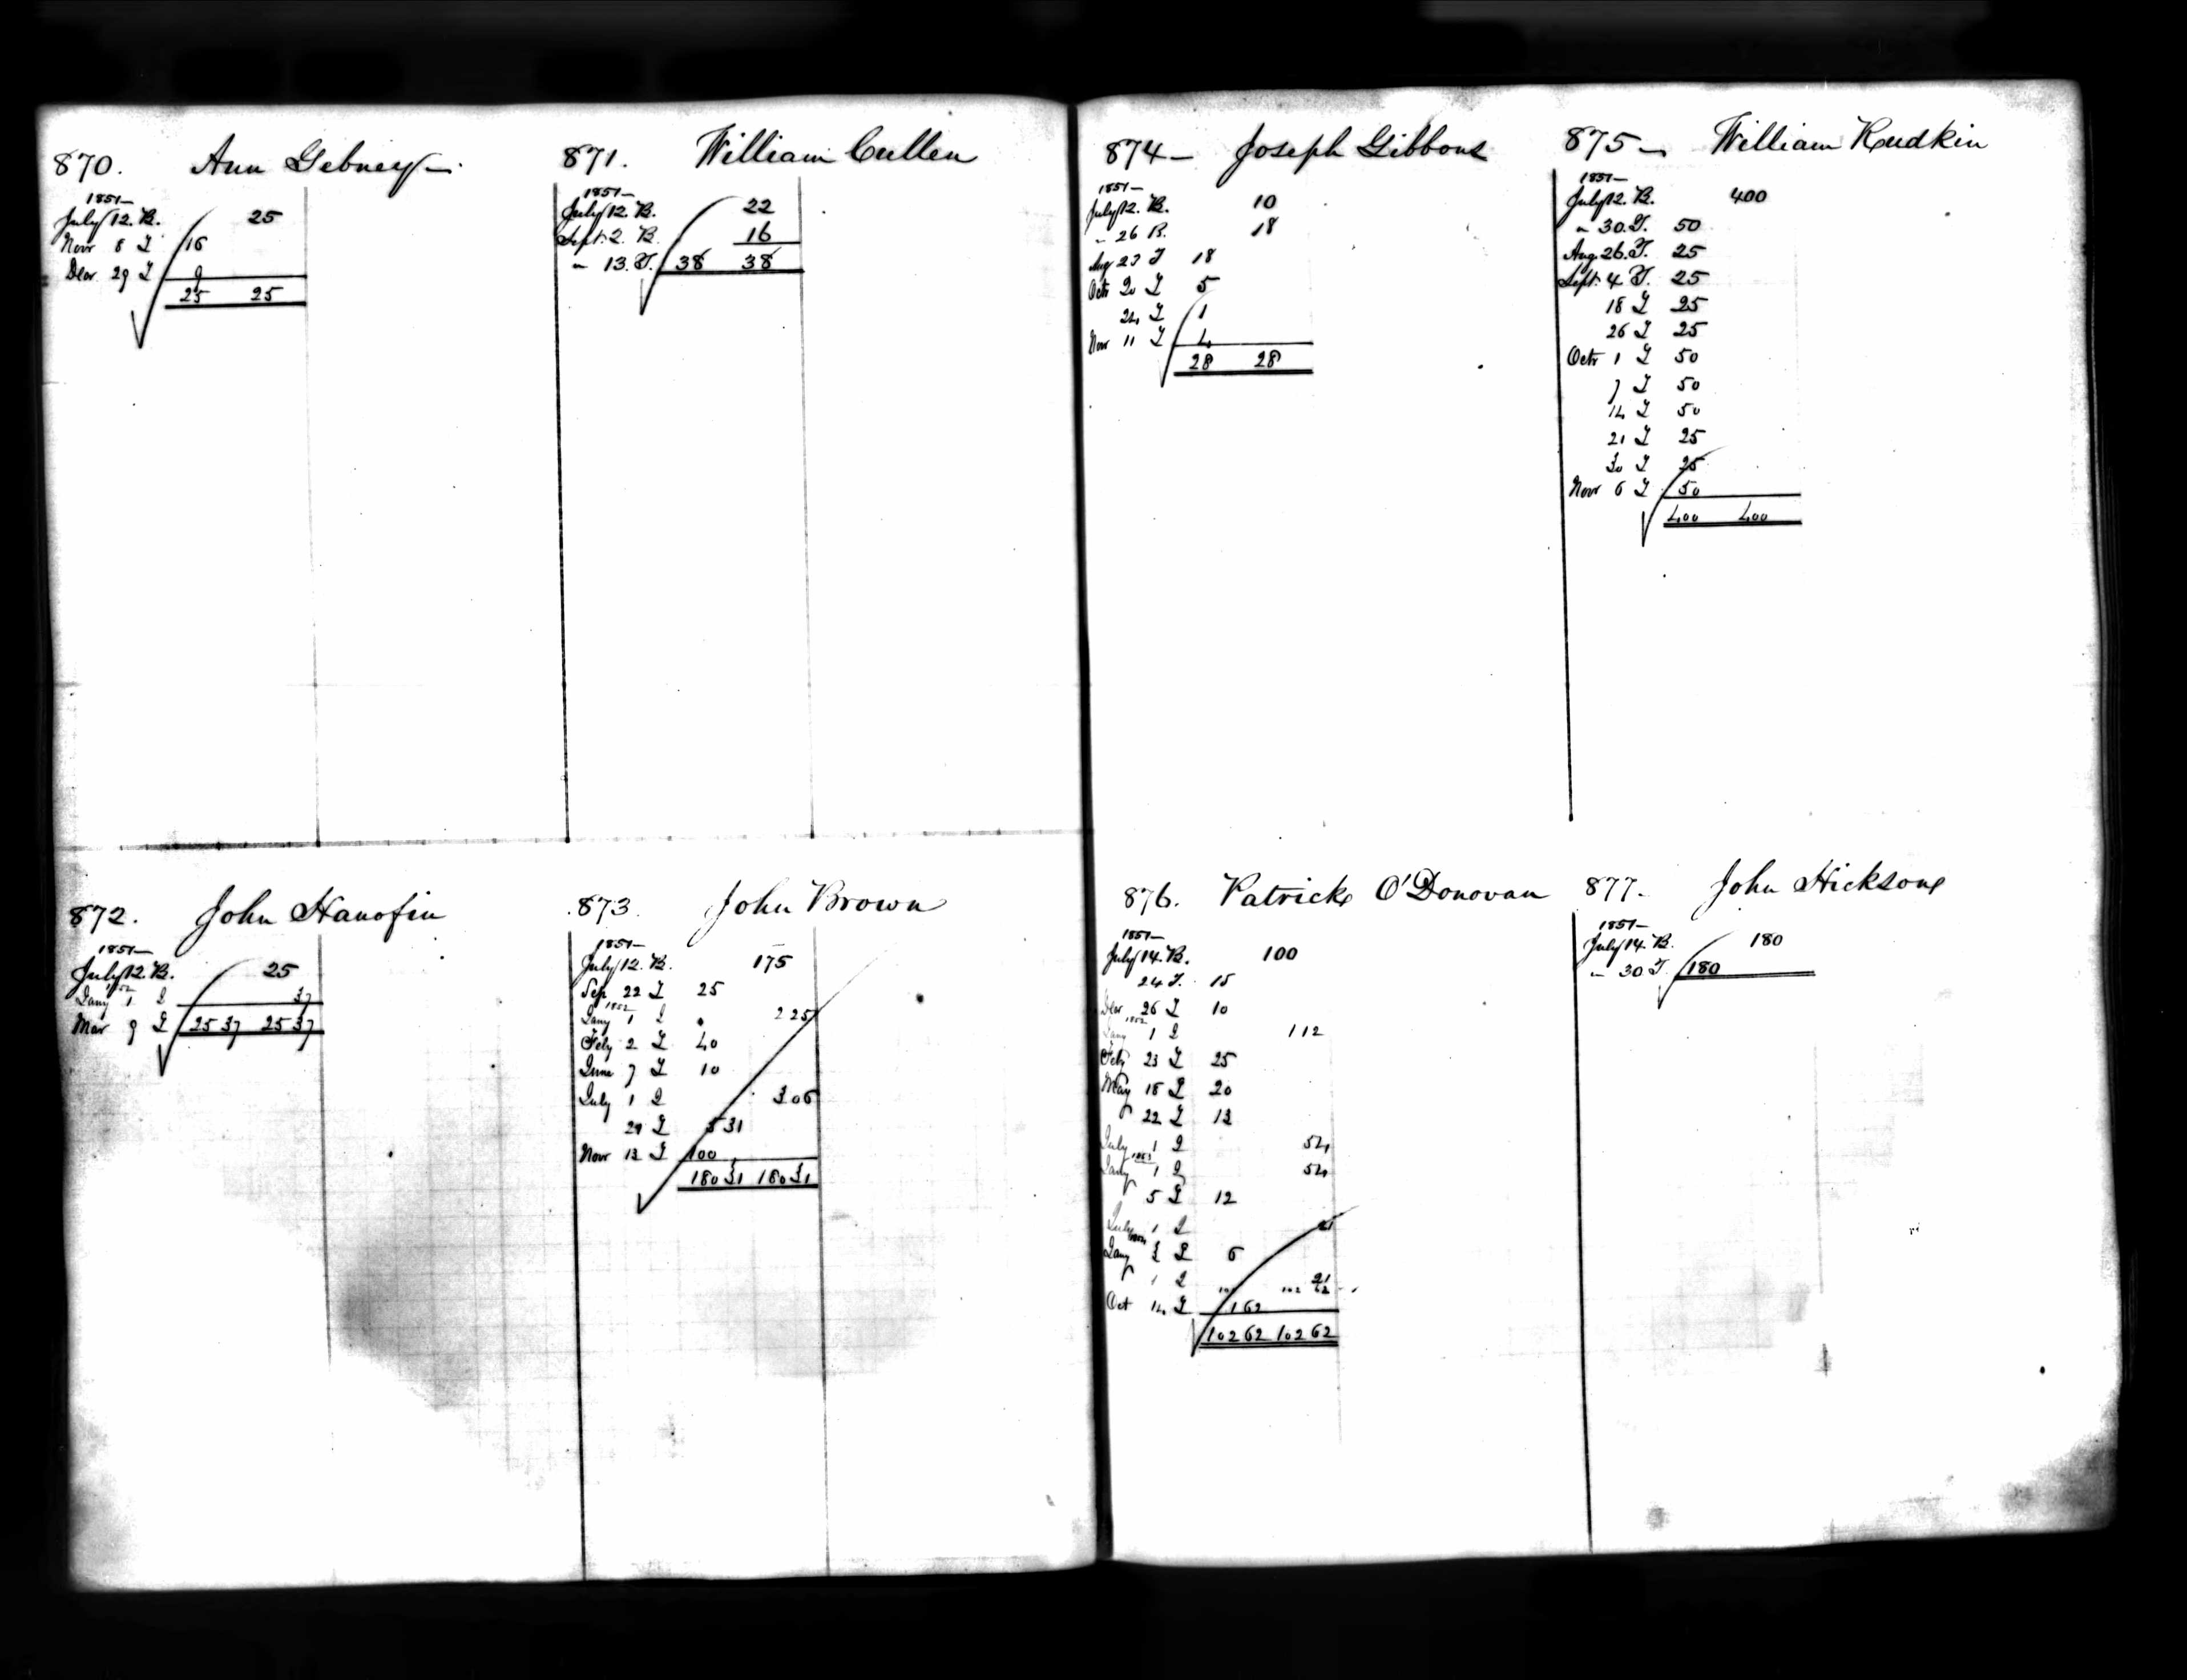 870. Ann Gebney
1851
July 12. B. 25
Novr 8 T 16
Decr 29 T 9
25 25
871. William Cullen
1851
July 12. B. 22
Sept. 2. B. 16
" 13. T. 38 38
872. John Hanofin
1851
July 12. B. 25
1852
Jany 1 I 37
Mar 9 T 25 37 25 37
873 John Brown
1851
July 12. B. 175
Sep 22 T 25
1852
Jany 1 I 2 25
Feby 2 T 40
June 7 T 10
July 1 I 3 06
29 T 5 31
Novr 13 T 100
180 31 180 31
874 Joseph Gibbons
1851
July 12. B. 10
" 26 B. 18
Aug 23 T 18
Octr 20 T 5
24 T 1
Novr 11 T 4
28 28
875 William Rudkin
1851
July 12. B. 400
" 30. T. 50
Aug. 26. T. 25
Sept. 4 T. 25
18 T 25
26 T 25
Octr 1 T 50
7 T 50
14 T 50
21 T 25
30 T 25
Novr 6 T 50
400 400
876. Patrick O'Donovan
1851
July 14. B. 100
24 T. 15
Decr 26 T 10
1852
Jany 1 I 1 12
Feby 23 T 25
May 18 T 20
22 T 13
July 1 I 54
1853
Jany 1 I 54
5 T 12
July 1 I 21
Jany 3 T 6
1 I 21
Oct 14 T 1 62
102 62 102 62
877. John Hickson
1851
July 14. B. 180
" 30 T. 180